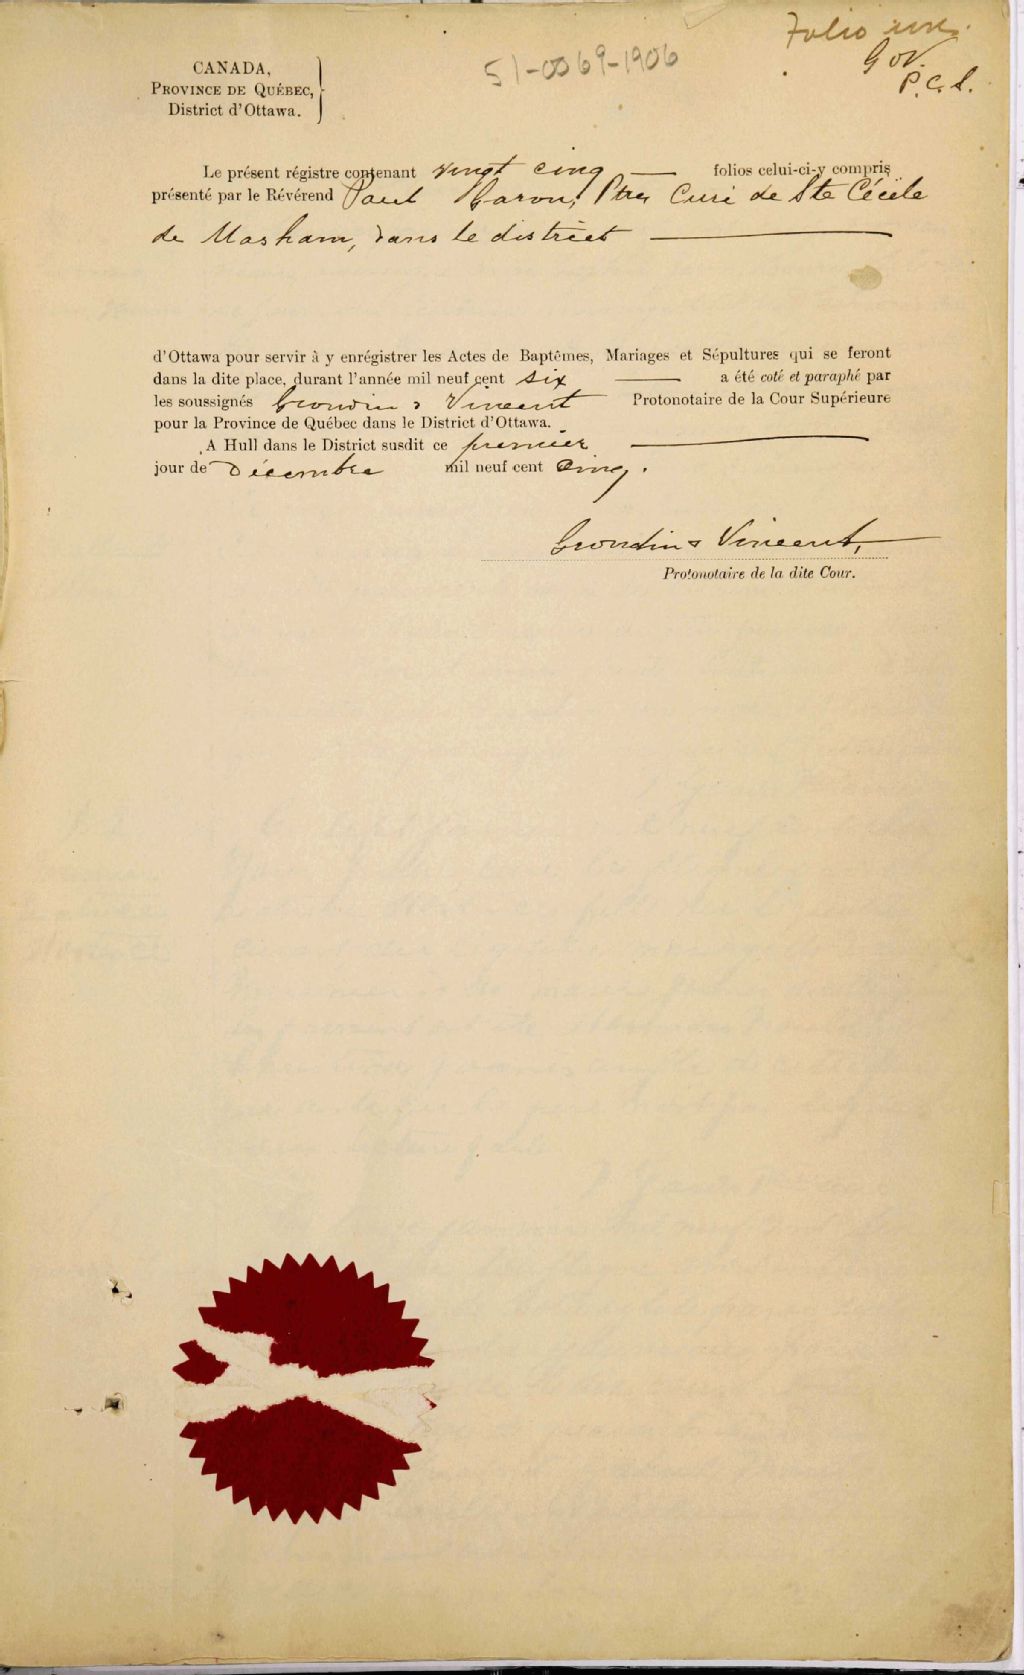 Folio un.
G & V.
P. C. S.
51-0069-1906
CANADA,
PROVINCE DE QUÉBEC,
District d'Ottawa.
Le présent régistre contenant vingt cinq — folios celui-ci-y compris
présenté par le Révérend Paul Garon, Ptre Curé de Ste Cécile
de Masham, dans le district —
d'Ottawa pour servir à y enrégistrer les Actes de Baptêmes, Mariages et Sépultures qui se feront
dans la dite place, durant l'année mil neuf cent six — a été coté et paraphé par
les soussignés Grondin & Vincent Protonotaire de la Cour Supérieure
pour la Province de Québec dans le District d'Ottawa.
A Hull dans le District susdit ce premier —
jour de Décembre mil neuf cent cinq.
Grondin & Vincent,
Protonotaire de la dite Cour.